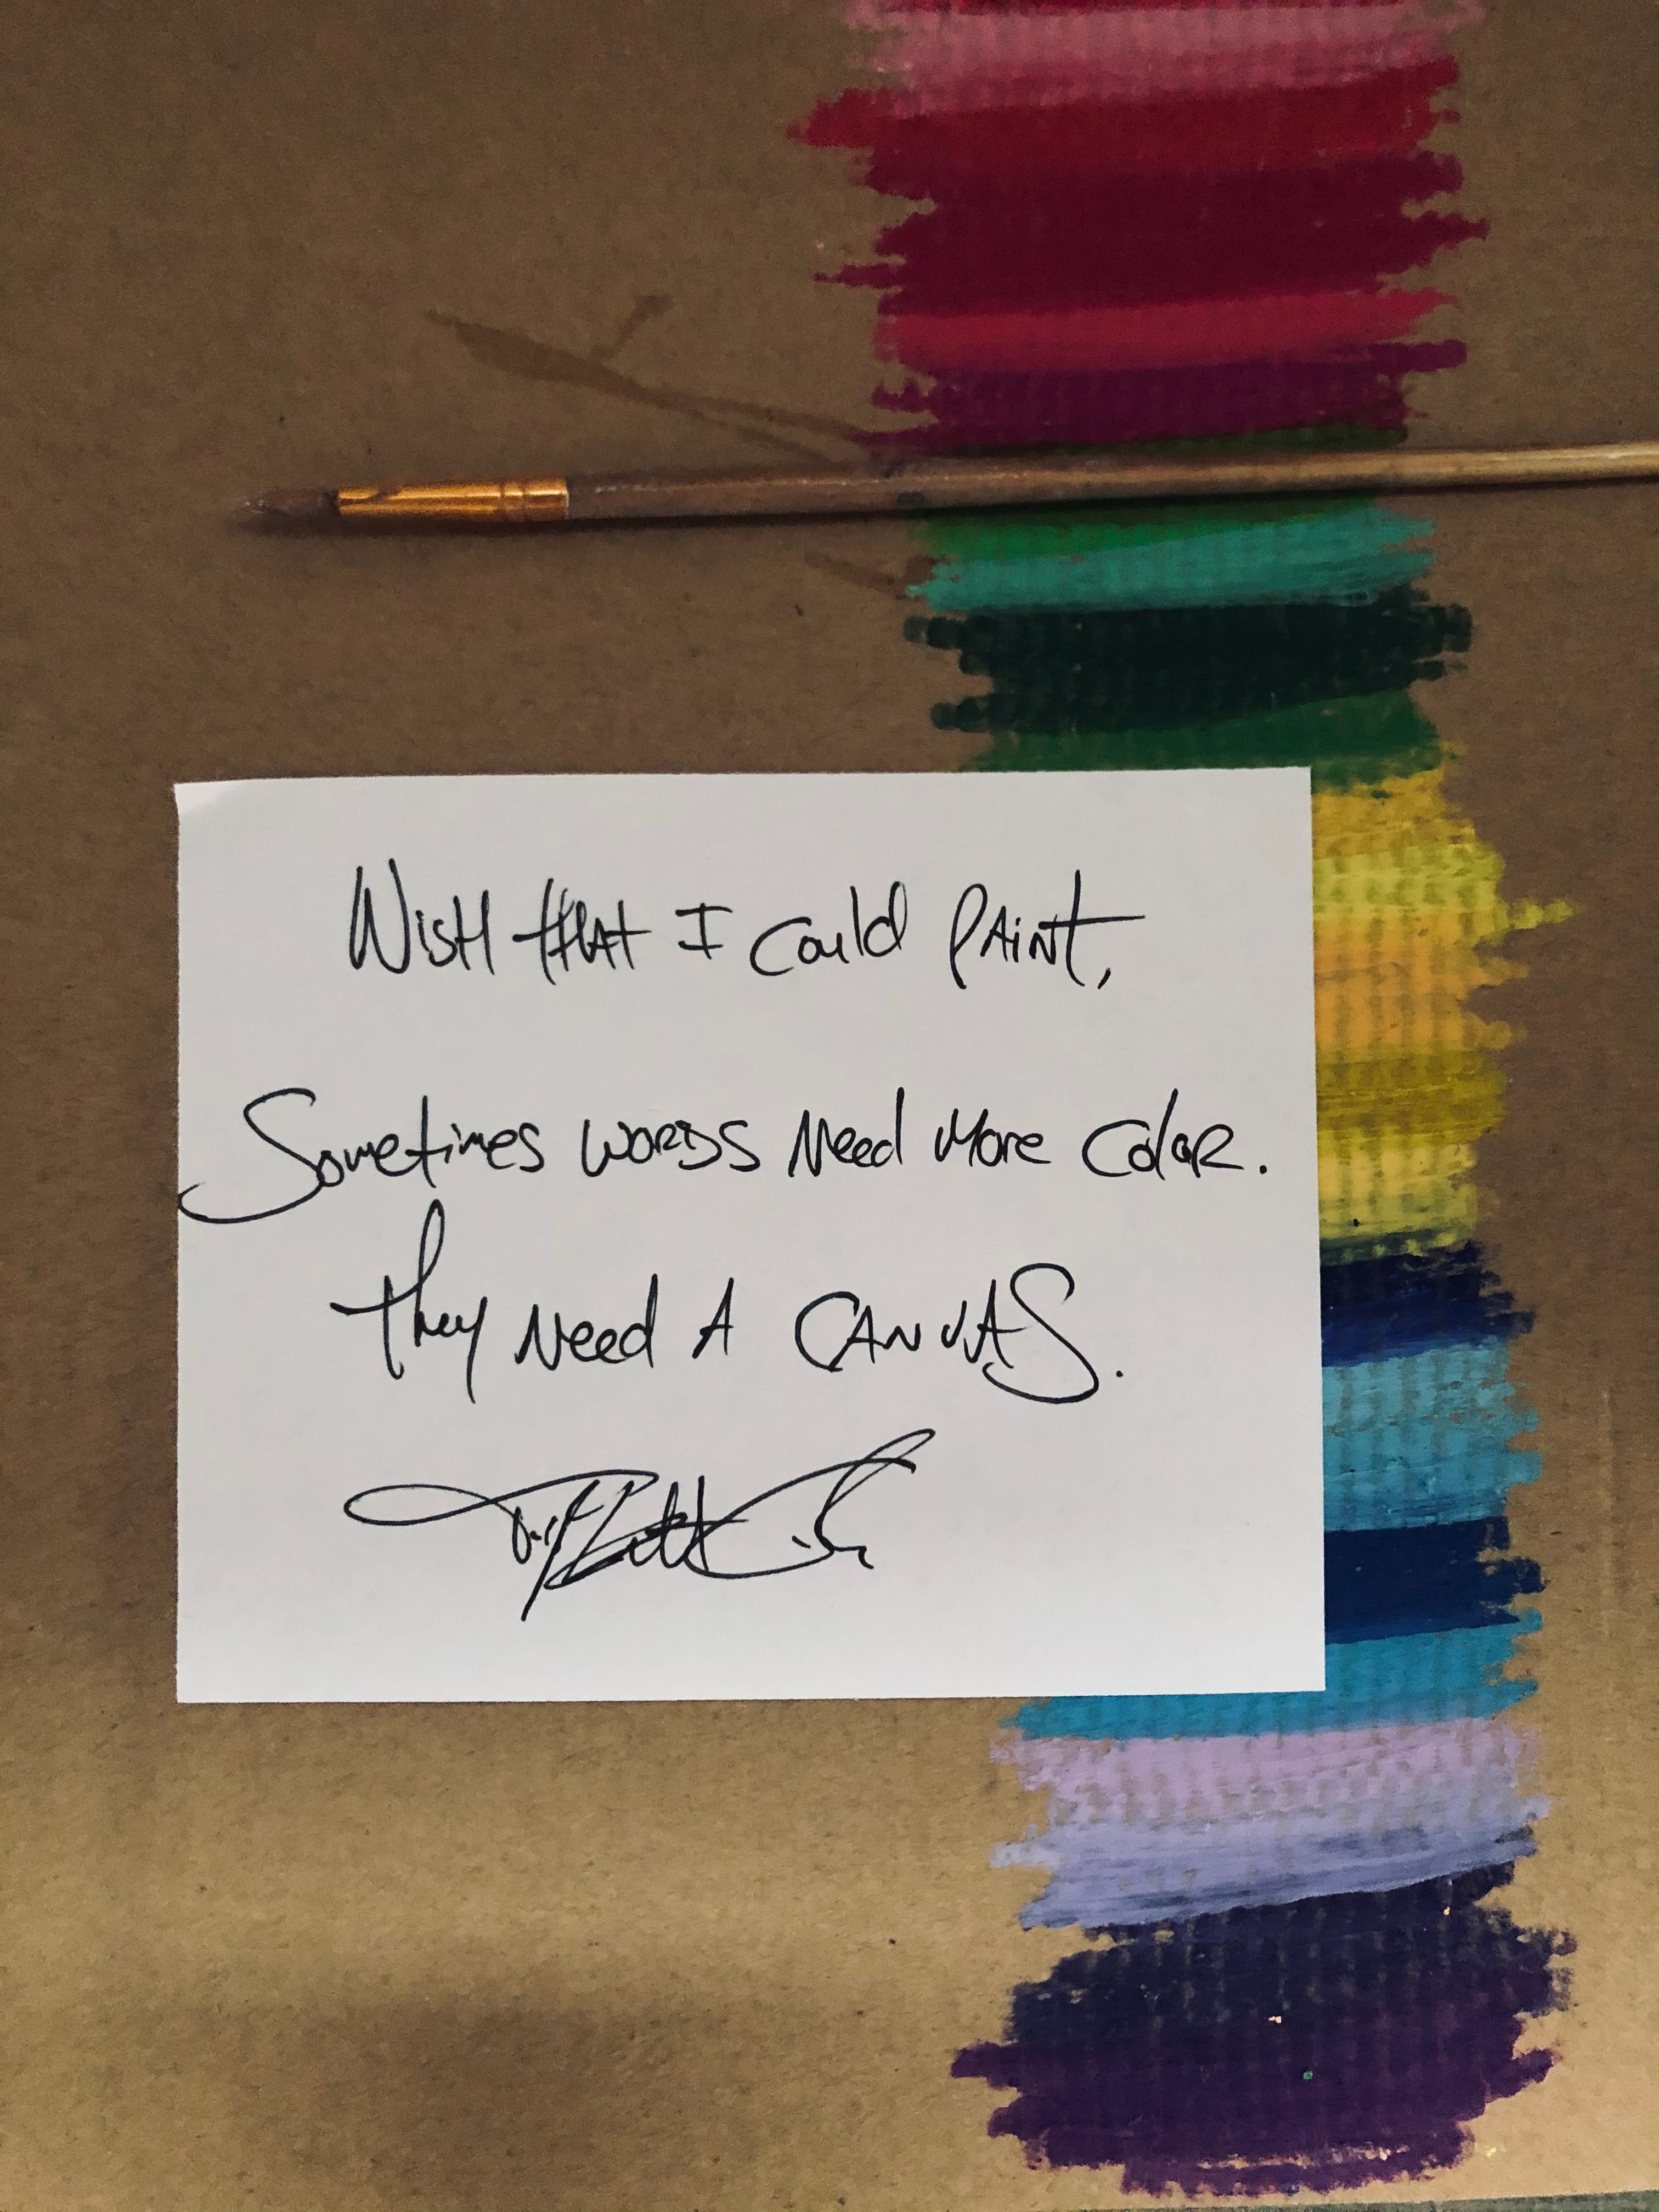 Wish that I could paint,
Sometimes words need more color.
They need a canvas.